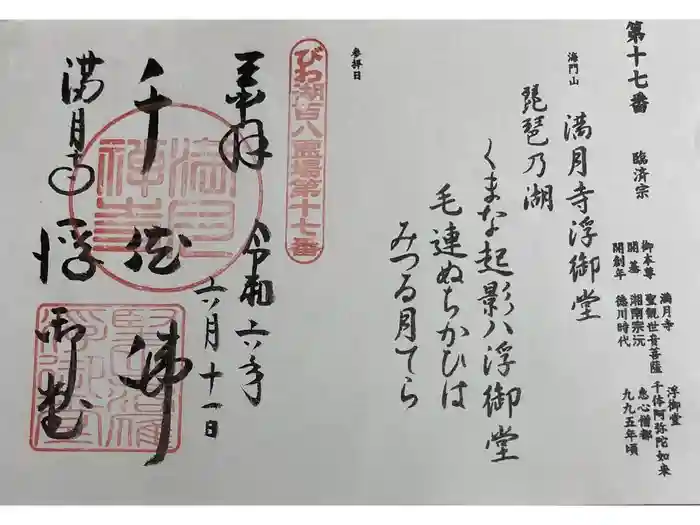 第十七番
臨済宗
海門山
満月寺浮御堂
御本尊
開基
開創年
満月寺
聖観世音菩薩
湘南宗沅
徳川時代
浮御堂
千体阿弥陀如来
恵心僧都
九九五年頃
琵琶乃湖
くまな起影八浮御堂
毛連ぬちかひは
みつる月てら
参拝日
びわ湖百八霊場第十七番
奉拝
令和六年
六月十一日
千体佛
満月寺
浮御堂